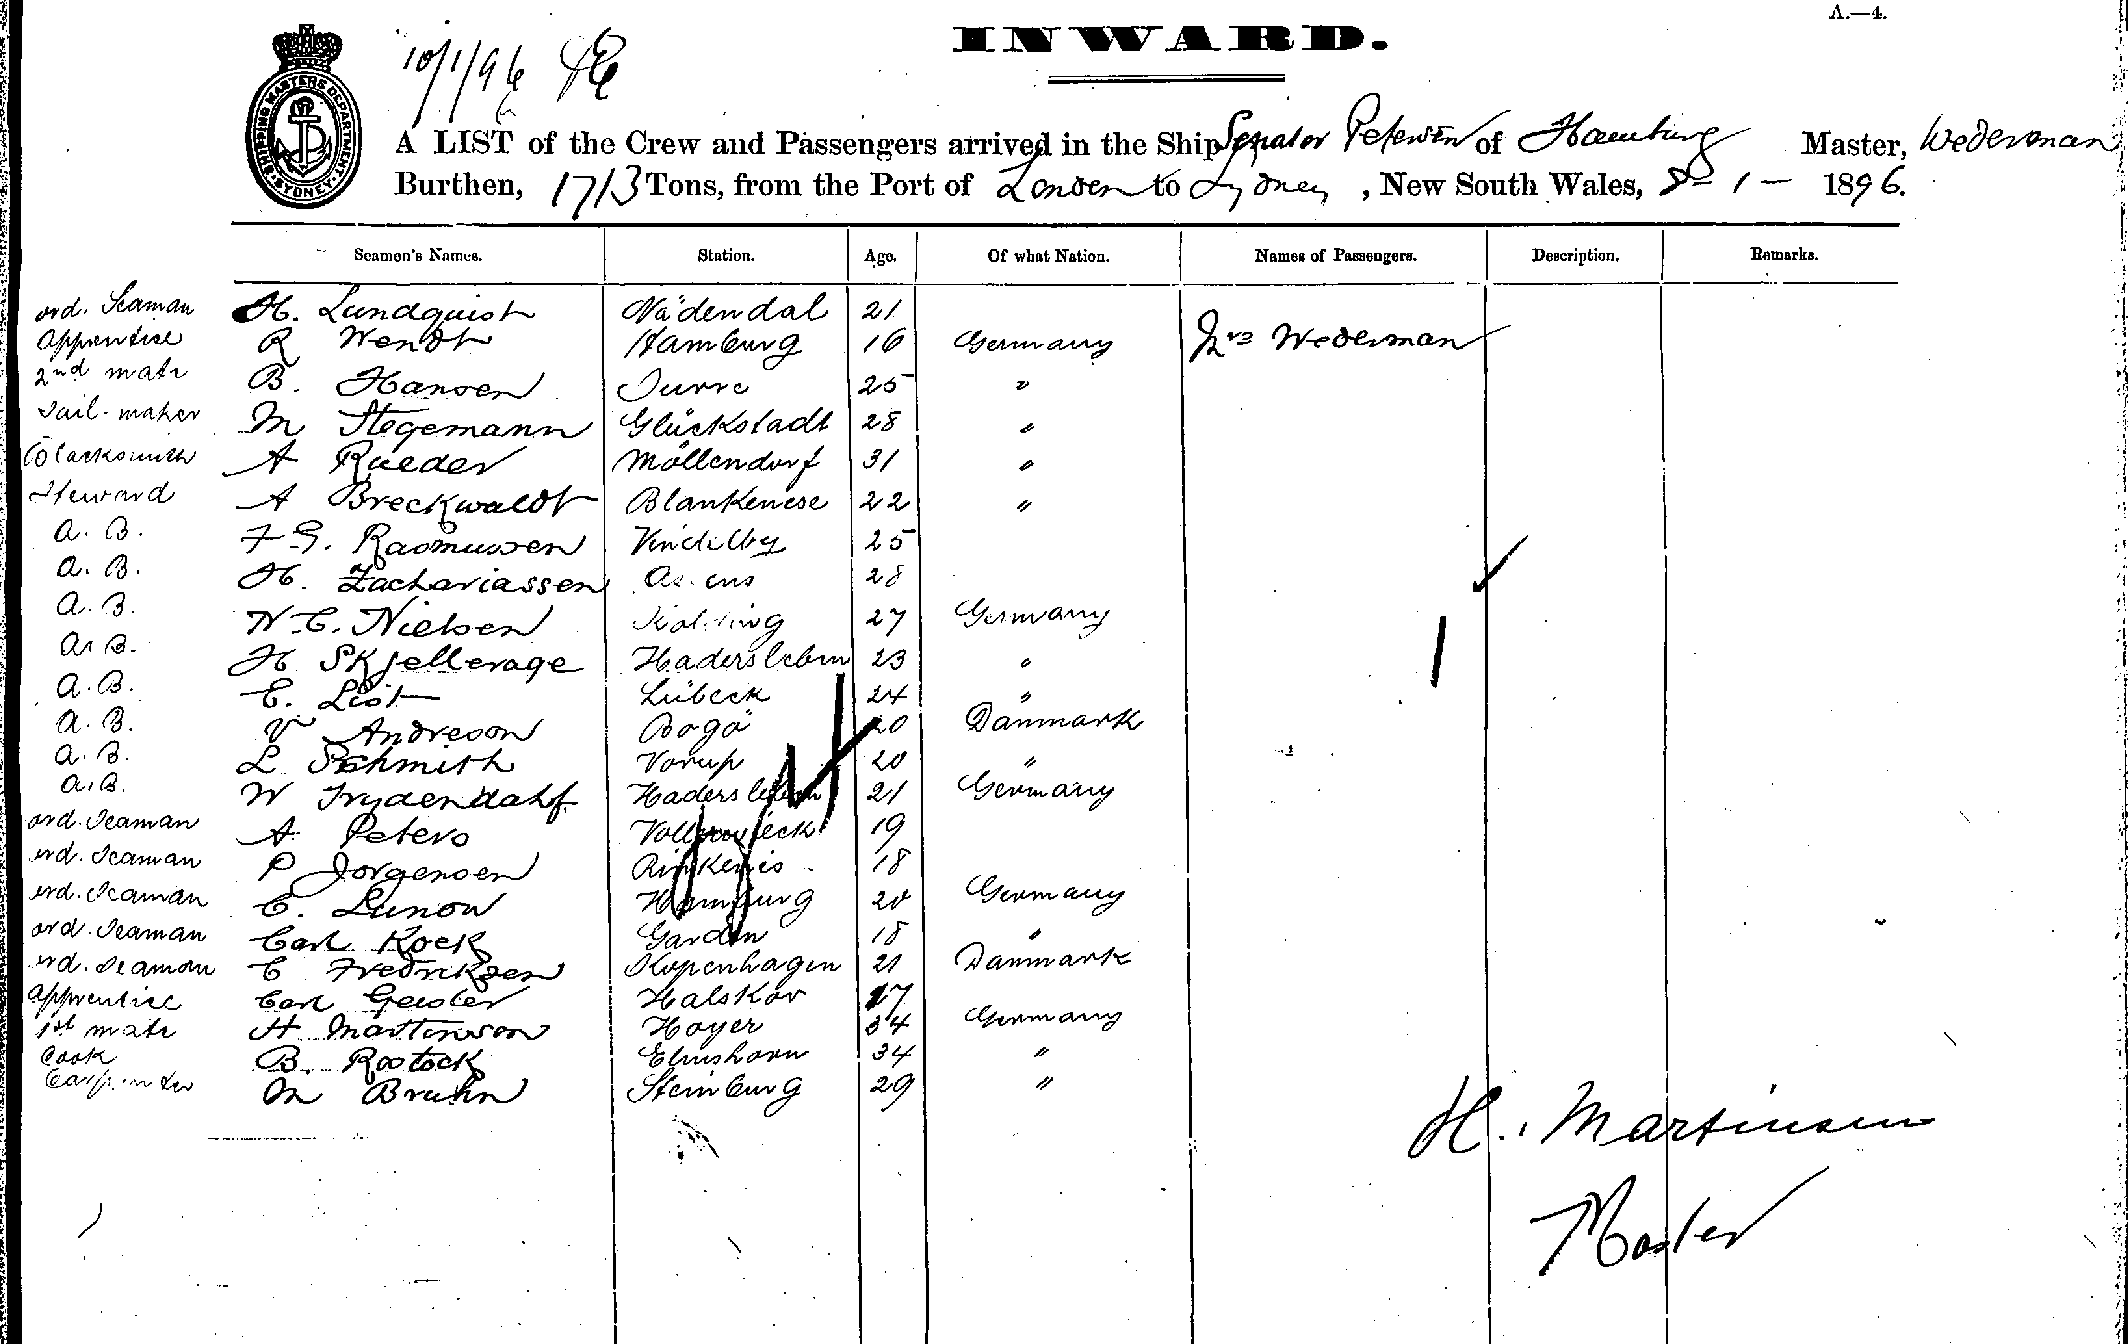 A.—4.
INWARD.
10/1/96
SHIPPING MASTERS DEPARTMENT SYDNEY
A LIST of the Crew and Passengers arrived in the Ship Senator Petersen of Hamburg Master, Wederman
Burthen, 1713 Tons, from the Port of London to Sydney, New South Wales, 8-1-1896.
Seamen's Names. Station. Age. Of what Nation. Names of Passengers. Description. Remarks.
ord. Seaman H. Lundquist Nädendal 21
Apprentise R Wendt Hamburg 16 Germany Mrs Wederman
2nd mate B. Hansen 25 "
Sail-maker M Stegemann Glückstadt 28 "
Blacksmith A Raeder Möllendorf 31 "
Steward A Breckwaldt Blankenese 22 "
A. B. F G. Rasmussen Vindelby 25
A. B. H. Zachariassen 28
A. B. N. C. Nielsen Kolding 27 Germany
A. B. H Skjellerage Hadersleben 23 "
A. B. C. List Lübeck 24 "
A. B. V Andreson Bogö 20 Danmark
A. B. L Schmith Vorup 20 "
A. B. W Frydendahl Hadersleben 21 Germany
ord. Seaman A Peters 19
ord. Seaman P Jorgensen Rinkenis 18
ord. Seaman C. Lunow Hamburg 20 Germany
ord. Seaman Carl Kock Garden 18 "
ord. Seaman C Fredriksen Kopenhagen 21 Danmark
Apprentise Carl Geisler Halskov 17
1st mate H Martinson Hoyer 34 Germany
Cook B. Rostock Elmshorn 34 "
Carpenter M Bruhn Steinburg 29 "
H. Martinsen
Master